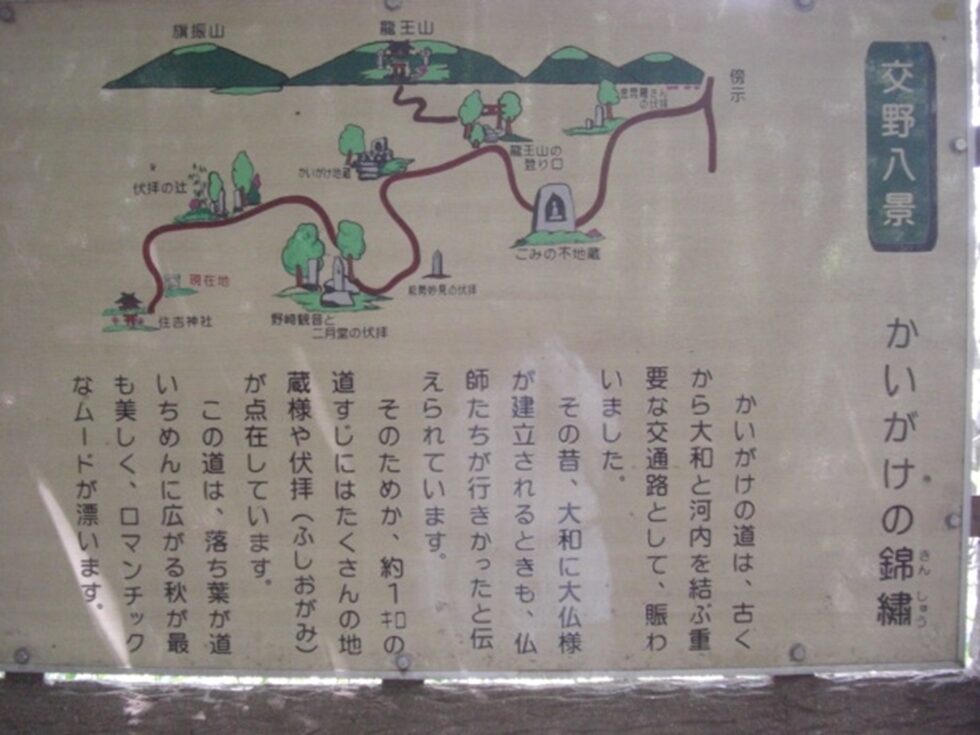 交野八景
かいがけの錦繍
きんしゅう
かいがけの道は、古く
から大和と河内を結ぶ重
要な交通路として、賑わ
いました。
その昔、大和に大仏様
が建立されるときも、仏
師たちが行きかったと伝
えられています。
そのためか、約1キロの
道すじにはたくさんの地
蔵様や伏拝(ふしおがみ)
が点在しています。
この道は、落ち葉が道
いちめんに広がる秋が最
も美しく、ロマンチック
なムードが漂います。
旗振山
龍王山
傍示
龍王山の
登り口
かいがけ地蔵
伏拝の辻
ごみの不地蔵
能勢妙見の伏拝
現在地
住吉神社
野崎観音と
二月堂の伏拝